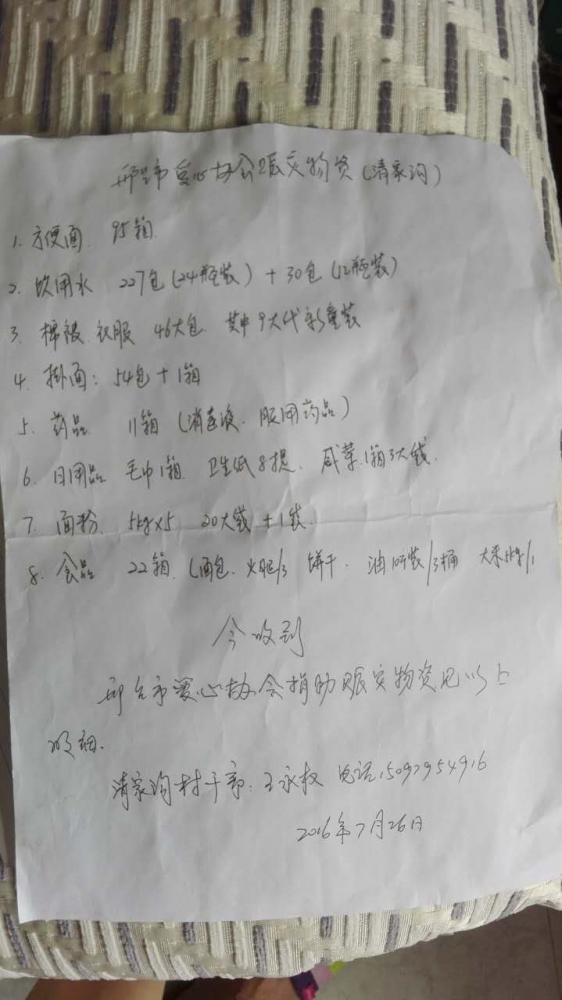 邢台市爱心协会赈灾物资(清家沟)
1. 方便面 95箱
2. 饮用水 227包(24瓶装)+30包(12瓶装)
3. 棉被 衣服 46大包 其中9大代彩童装
4. 掛面: 54包+1箱
5. 药品 11箱(消毒液、服用药品)
6. 日用品 毛巾1箱 卫生纸8提、咸菜1箱3大袋
7. 面粉 5kg×5 20大袋+1袋
8. 食品 22箱(面包、火腿/3 饼干、油 装/3桶 大米5kg/1
今收到
邢台市爱心协会捐助赈灾物资见以上
明细.
清家沟村干部: 王永权 电话15097954916
2016年7月26日